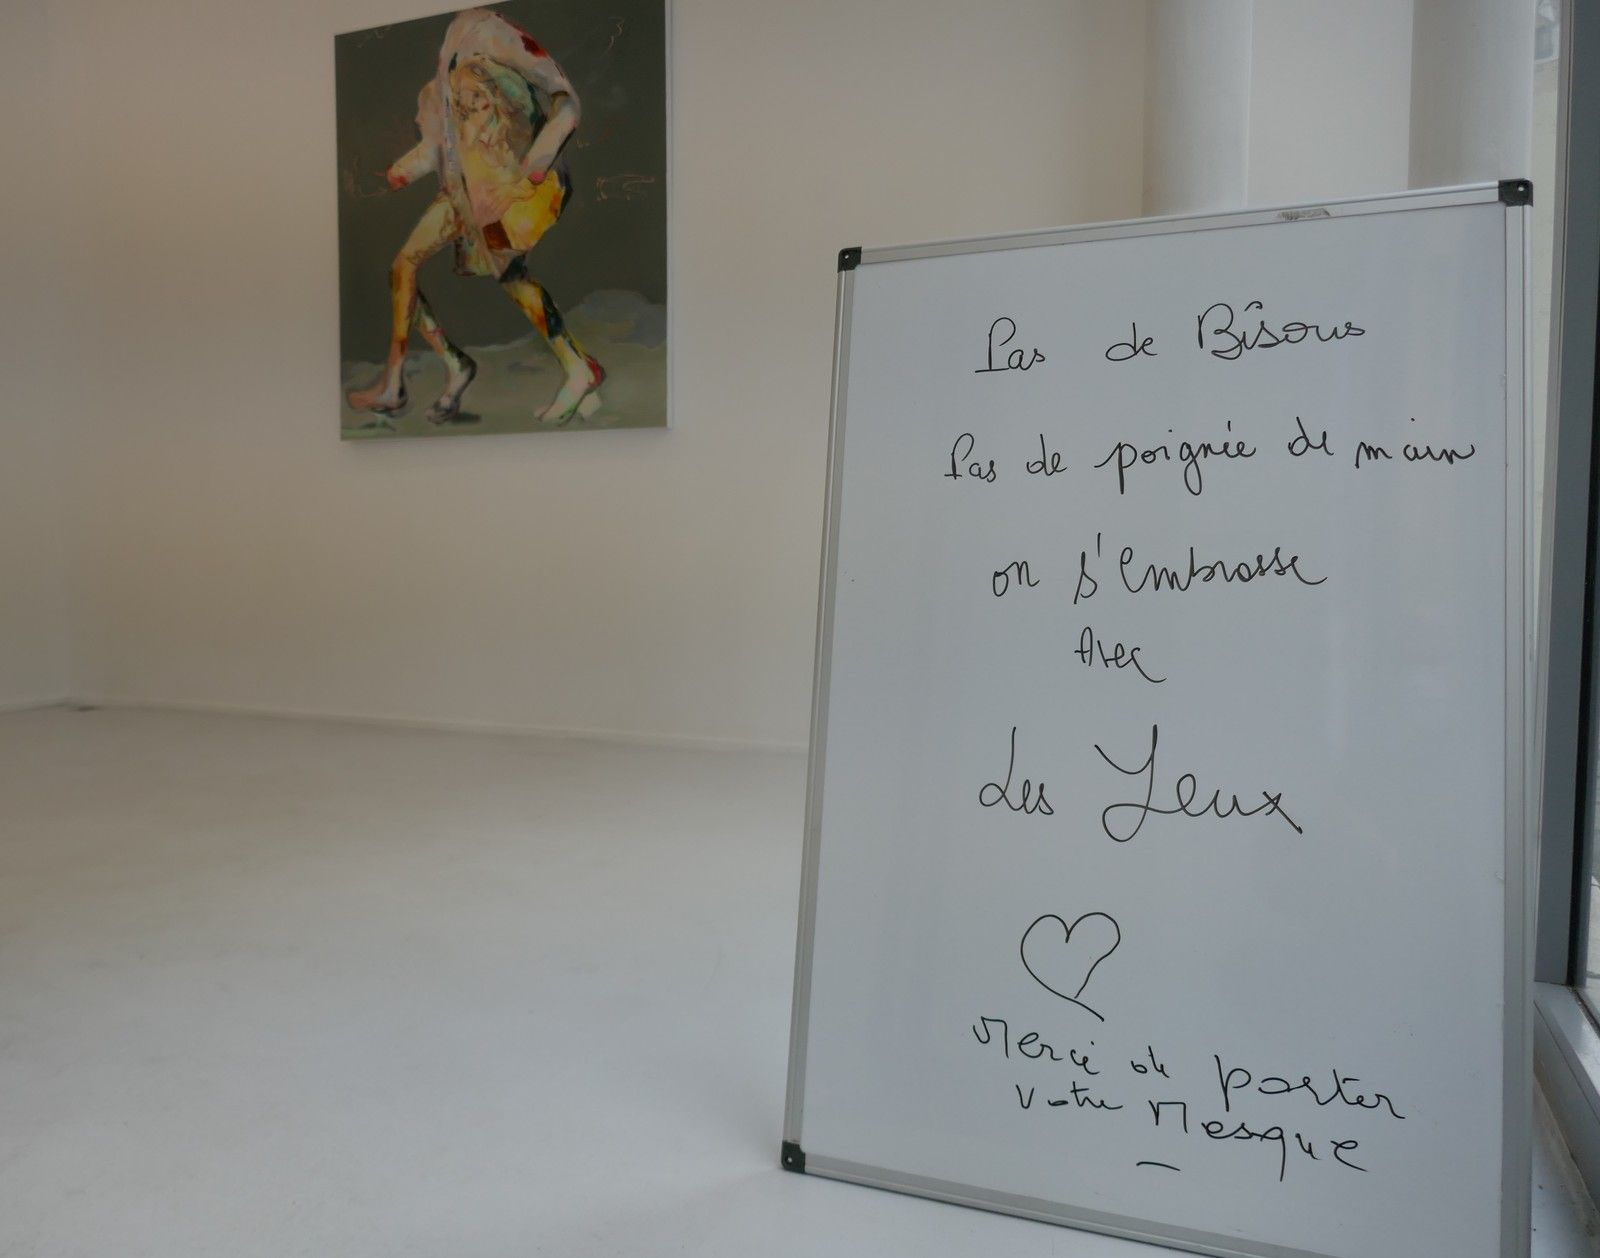 Pas de Bîsous
Pas de poignée de main
on s'embrasse
Avec
Les Yeux
Merci de porter
votre Mesque